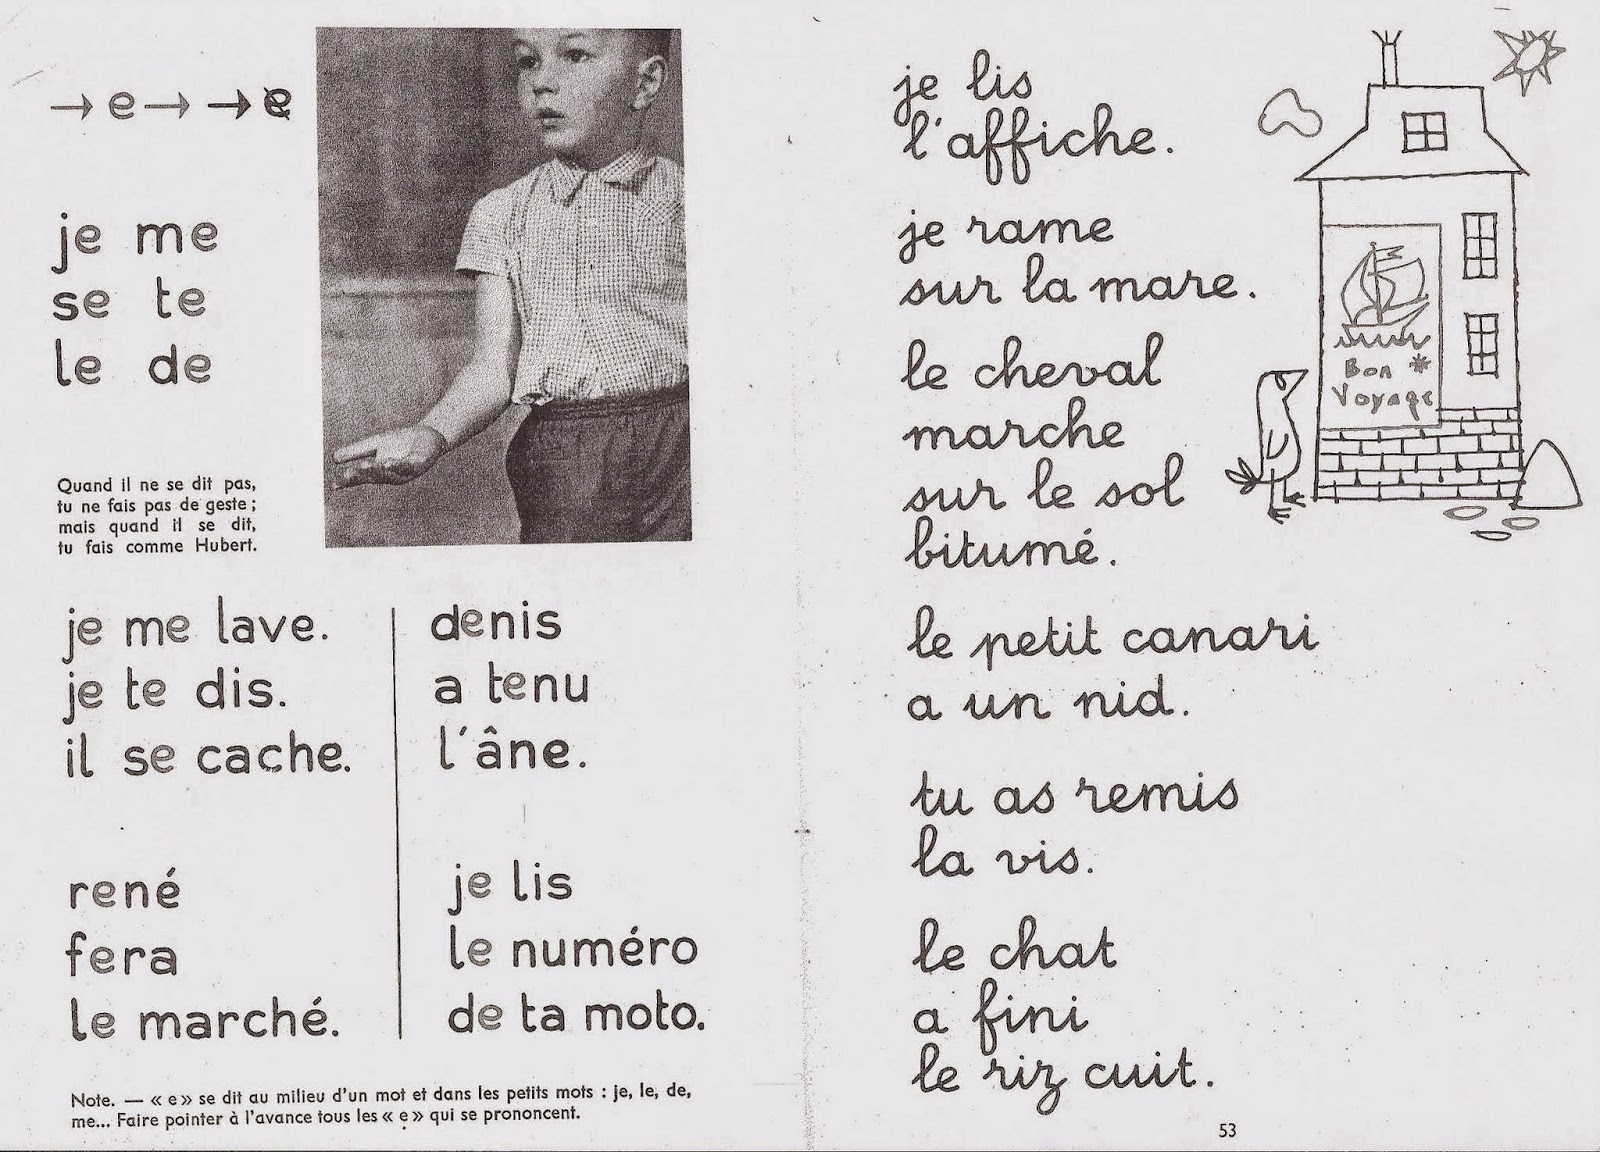 → e → → e
je me
se te
le de
Quand il ne se dit pas,
tu ne fais pas de geste ;
mais quand il se dit,
tu fais comme Hubert.
je me lave.
je te dis.
il se cache.
rené
fera
le marché.
denis
a tenu
l'âne.
je lis
le numéro
de ta moto.
Note. — « e » se dit au milieu d'un mot et dans les petits mots : je, le, de,
me... Faire pointer à l'avance tous les « ẹ » qui se prononcent.
je lis
l'affiche.
je rame
sur la mare.
le cheval
marche
sur le sol
bitumé.
le petit canari
a un nid.
tu as remis
la vis.
le chat
a fini
le riz cuit.
Bon
Voyage
53